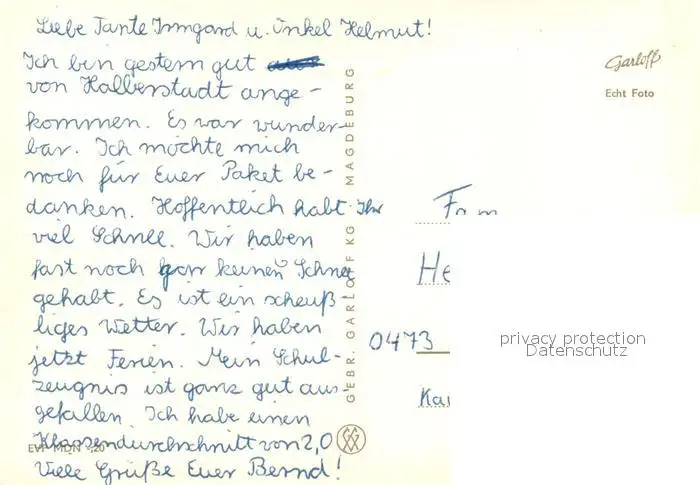 Liebe Tante Irmgard u. Onkel Helmut!
Ich bin gestern gut
von Halberstadt ange-
kommen. Es war wunder-
bar. Ich möchte mich
noch für Euer Paket be-
danken. Hoffentlich habt Ihr
viel Schnee. Wir haben
fast noch gar keinen Schnee
gehabt. Es ist ein scheuß-
liges Wetter. Wir haben
jetzt Ferien. Mein Schul-
zeugnis ist ganz gut aus-
gefallen. Ich habe einen
Klassendurchschnitt von 2,0
Viele Grüße Euer Bernd!
GEBR. GARLOFF KG MAGDEBURG
Garloff
Echt Foto
Fam
He
0473
Ka
privacy protection
Datenschutz